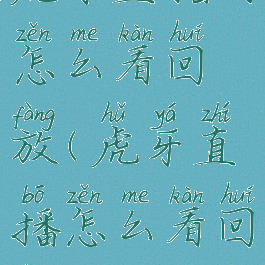 zěn me kàn huí
怎么看回
fàng hǔ yá zhí
放(虎牙直
bō zěn me kàn huí
播怎么看回